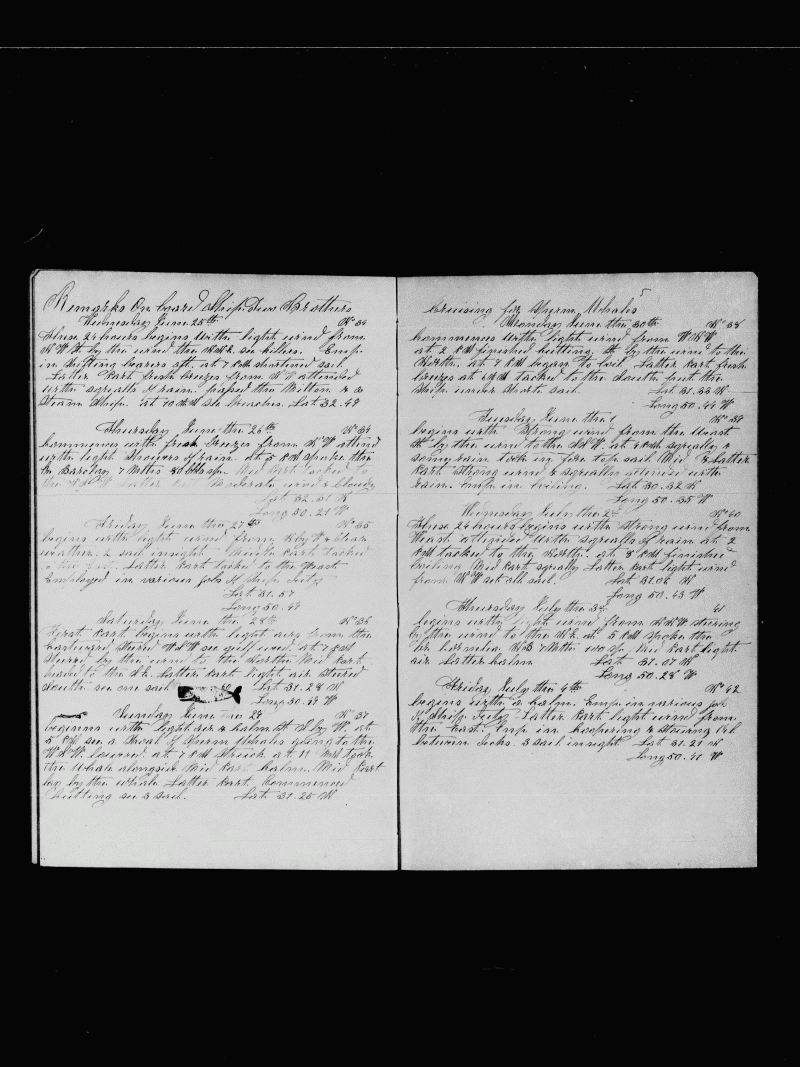 Remarks On board Ship Two Brothers
Wednesday June 25th No 34
These 24 hours begins with light wind from
N.W. St by the wind the N.N.E. see killers. Emp
in shifting bearers aft. at 7 P.M. shortened sail.
Latter Part fresh breezes from N W attended
with squalls of rain. passed the Milton & a
Steam Ship. at 10 A.M. see breaches. Lat 32.49
Thursday June the 26th No 34
Commences with fresh breezes from N W attend
with light showers of rain. at 5 P.M. spoke the
7 Mths 40 bbls sp. Mid Part tacked to
the latter Part Moderate wind & cloudy
Lat 32.31 N
Long 50.21 W
Friday June the 27th No 35
begins with light wind from N by W & clear
weather. 2 sail insight Middle Part tacked
Latter Part tacked to the West
Employed in various jobs of ship duty
Lat 31.57
Long 50.49
Saturday June the 28th No 36
First Part begins with light airs from the
Eastward. Steered W.S.W. see at 7 P.M.
steered by the wind to the North Mid Part
headed to the S.E. Latter Part light air steered
South. see one sail Lat 31.28 N
Long 50.49 W
Sunday June the 29 No 37
begins with light air & calm St S by W. at
5 P.M. see a Shoal of Sperm Whales going to the
W.N.W. lowered at 7 P.M. Struck at 11 P.M. took
the whale alongside Mid Part calm. Mid Part
lay by the whale Latter Part. Commenced
Cutting see 3 sail. Lat 31.25 N
5
Cruising for Sperm Whales
Monday June the 30th No 38
Commences with light wind from W.N.W.
at 2 P.M. finished cutting St by the wind to the
North. at 7 P.M. began to boil. Latter Part fresh
breezes at 6 A.M. tacked to the South put the
Ship under short sail. Lat 31.33 N
Long 50.49 W
Tuesday June the 1 No 39
begins with Strong wind from the West
St by the wind to the S.S.W. at 4 P.M. squally &
some rain took in fore top sail Mid & Latter
Part strong wind & squally attended with
rain. Emp in boiling. Lat 30.32 N
Long 50.35 W
Wednesday July the 2d No 40
These 24 hours begins with strong wind from
West attended with squalls of rain at 2
P.M. tacked to the North. at 8 P.M. finished
boiling Mid Part squally Latter Part light wind
from N W set all sail. Lat 31.06 N
Long 50.43 W
Thursday July the 3d 41
begins with light wind from N.N.W. steering
by the wind to the N.E. at 5 P.M. spoke the
N.B 7 Mths 100 sp. Mid Part light
air Latter calm Lat 31.07 N
Long 50.28 W
Friday July the 4th No 42
begins with a calm. Emp in various job
of Ship duty Latter Part light wind from
the East. Emp in coopering & stowing Oil
between decks. 3 sail insight Lat 31.21 N
Long 50.41 W